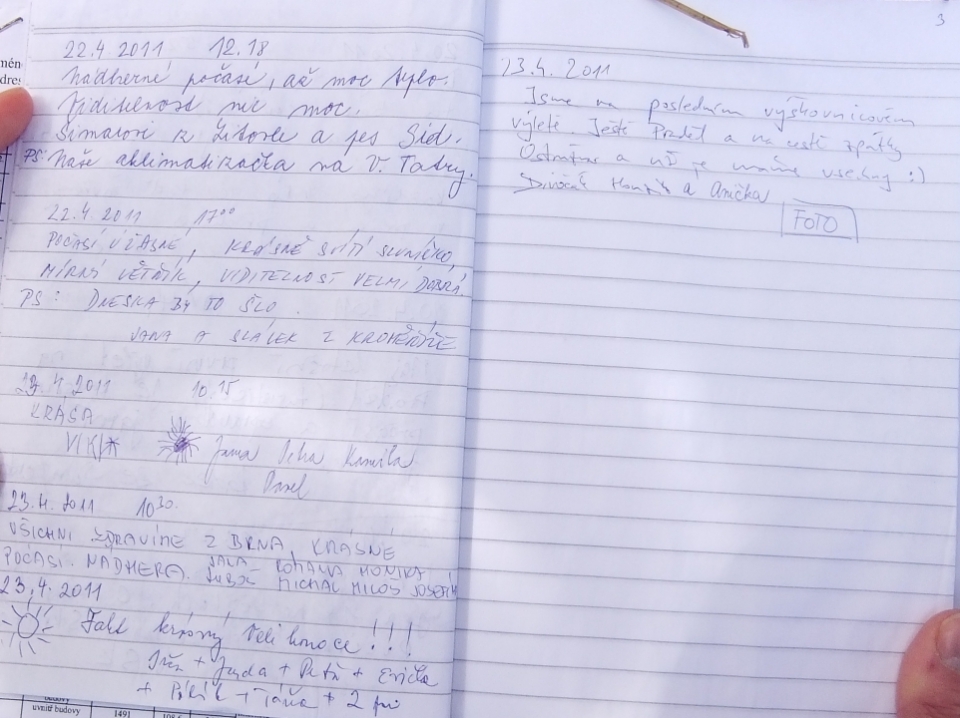 22.4.2011 12.18
Nádherné počasí, ač moc teplo.
Viditelnost nic moc.
Šimalovi z Litovle a pes Sid.
PS: Naše aklimatizačka na V. Tatry.
22.4.2011 17⁰⁰
POČASÍ ÚŽASNÉ, KRÁSNĚ SVÍTÍ SLUNÍČKO,
MÍRNÝ VĚTŘÍK, VIDITELNOST VELMI DOBRÁ.
PS: DNESKA BY TO ŠLO.
JANA A SLÁVEK Z KROMĚŘÍŽE
4.2011 10.15
KRÁSA
Jana Kamila
Pavel
23.4.2011 10³⁰
VŠICHNI ZDRAVÍME Z BRNA, KRÁSNÉ
POČASÍ. NÁDHERA. ROMANA MONIKA
MICHAL MILOŠ JOSEF
23.4.2011
Fakt krásný Velikonoce!!!
+ Jarda + Petr +
+ + Táňa + 2
uvnitř budovy 1491
3
23.4.2011
Jsme na posledním výškovnicovém
výletě. Ještě Praděd a na cestě zpátky
a už je máme všechny :)
Honzík a Anička
FOTO